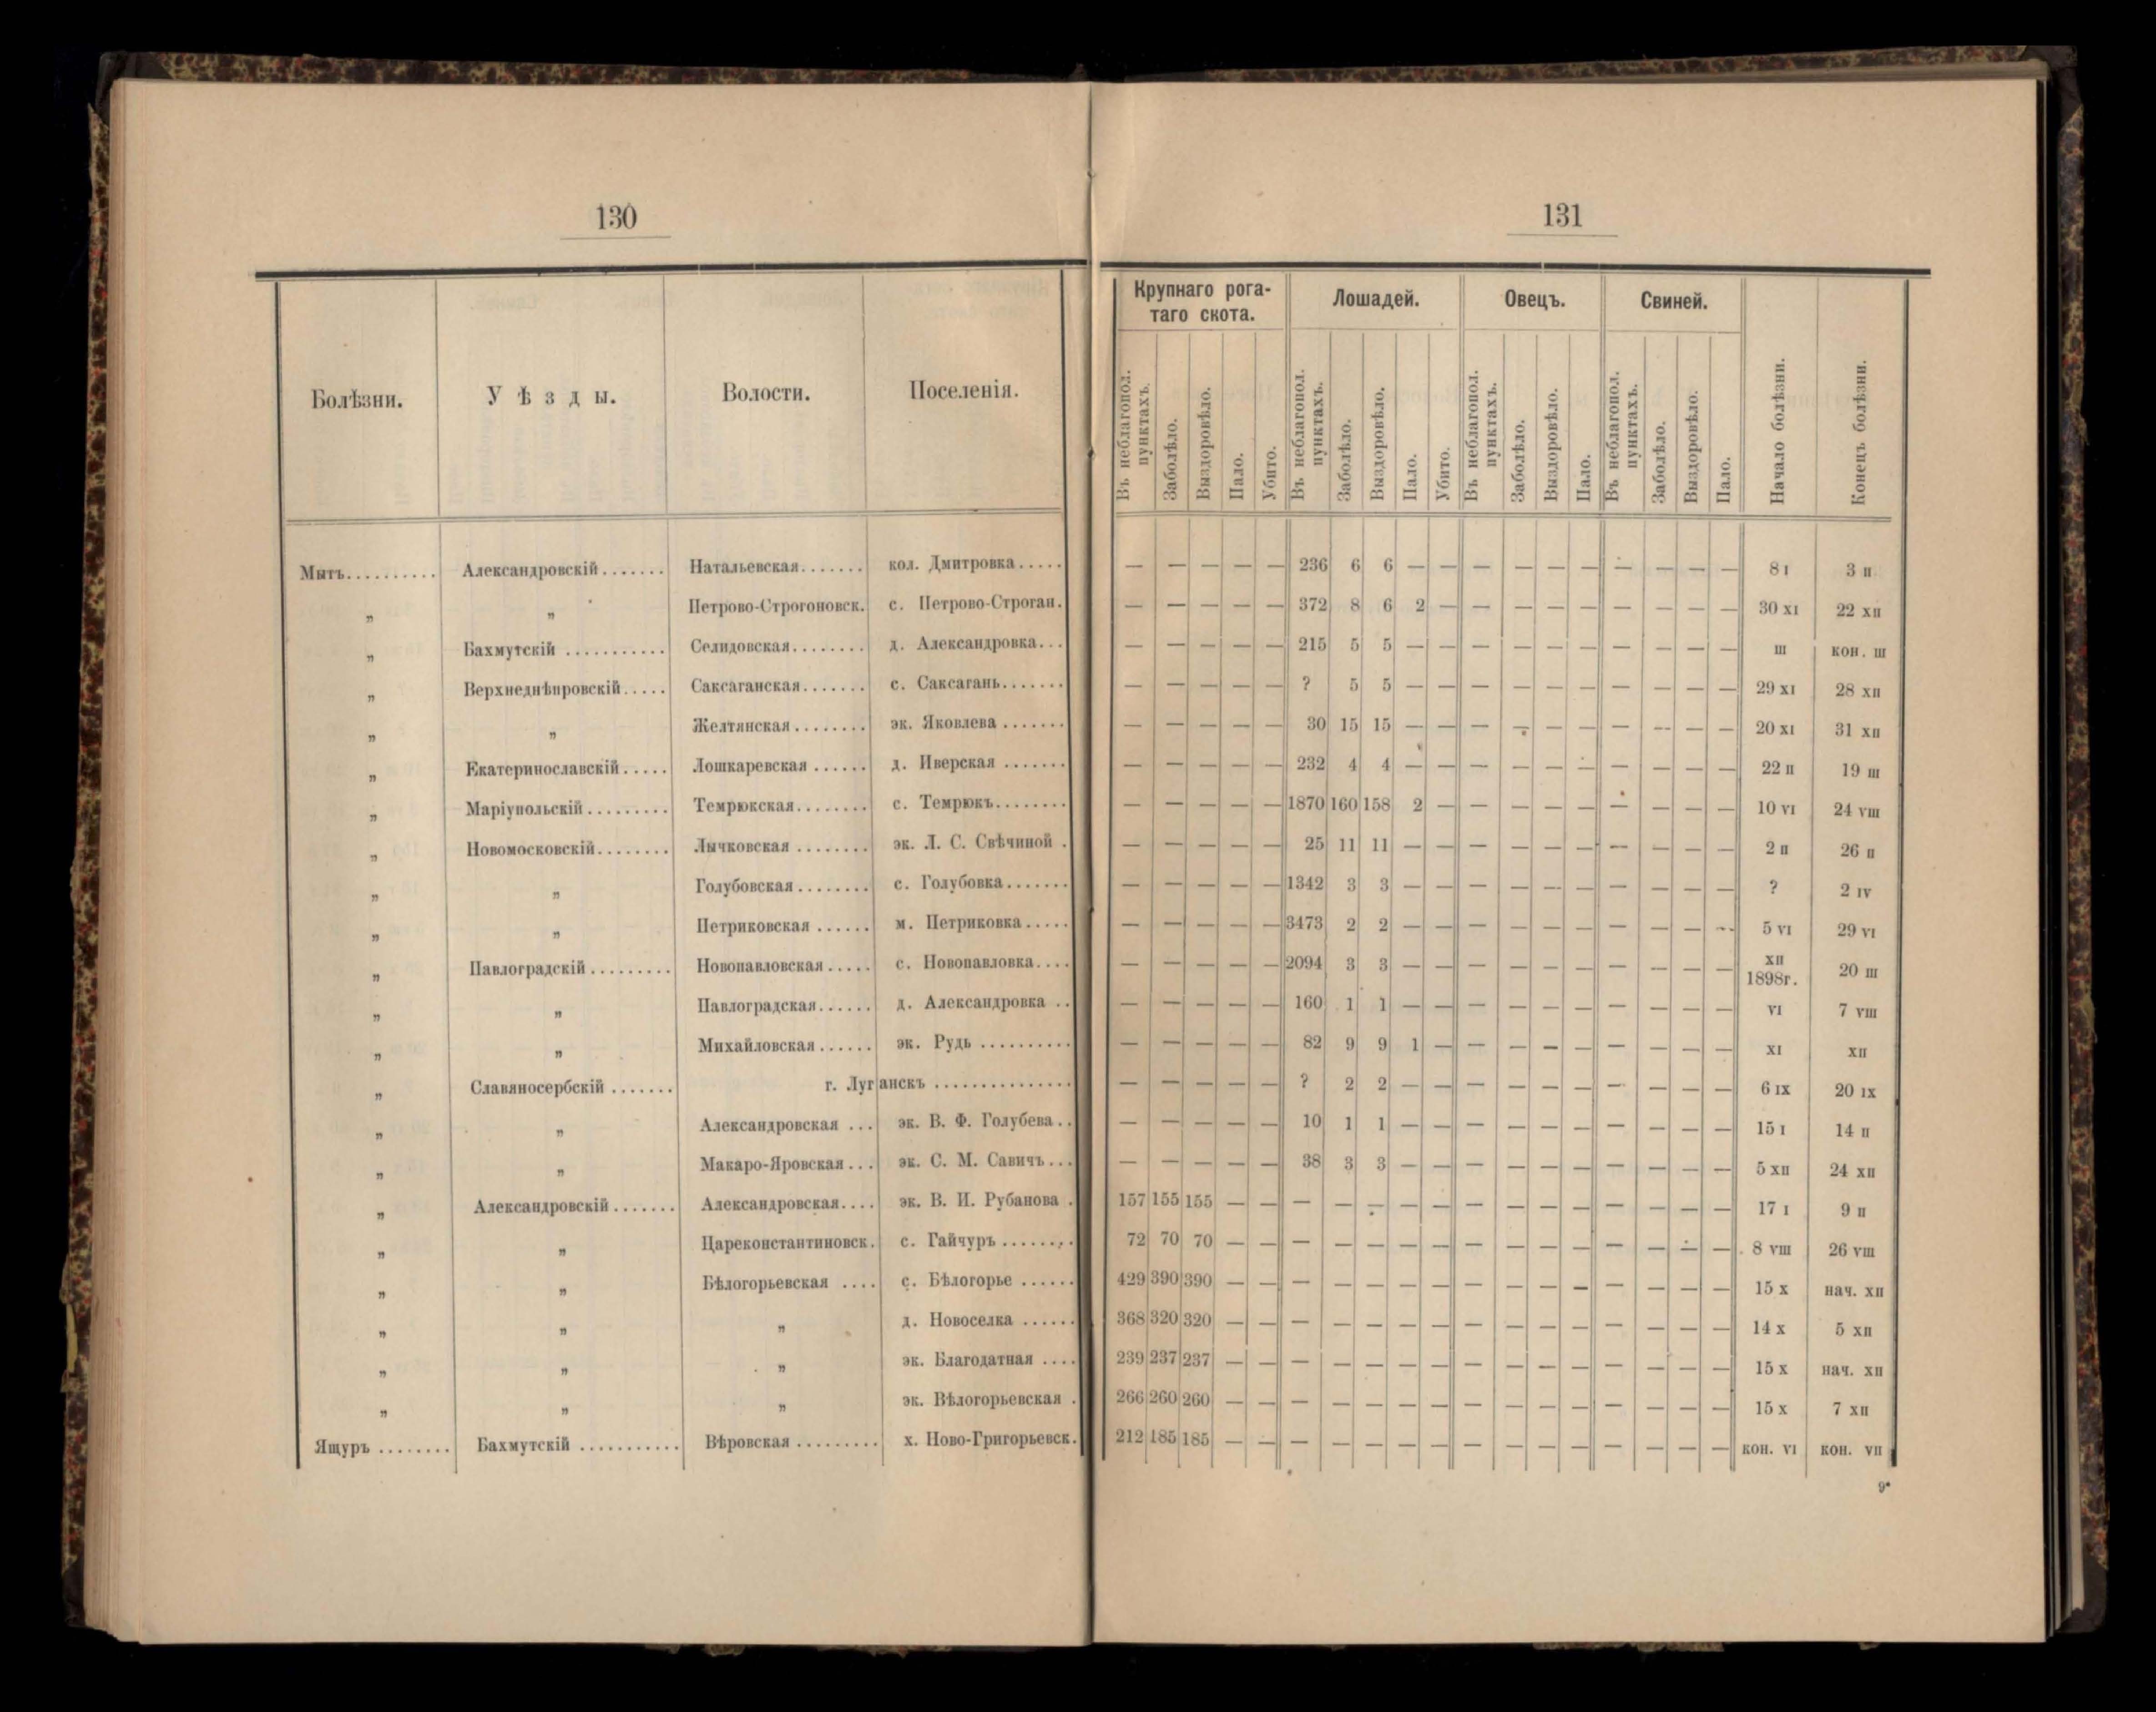 130
Болѣзни. Уѣзды. Волости. Поселенія.
Мытъ.......... Александровскій....... Натальевская....... кол. Дмитровка.....
„ „ Петрово-Строгоновск. с. Петрово-Строган.
„ Бахмутскій ........... Селидовская........ д. Александровка...
„ Верхнеднѣпровскій..... Саксаганская....... с. Саксагань.......
„ „ Желтянская........ эк. Яковлева .......
„ Екатеринославскій..... Лошкаревская ...... д. Иверская .......
„ Маріупольскій......... Темрюкская........ с. Темрюкъ........
„ Новомосковскій........ Лычковская ........ эк. Л. С. Свѣчиной .
„ „ Голубовская........ с. Голубовка.......
„ „ Петриковская ...... м. Петриковка.....
„ Павлоградскій......... Новопавловская..... с. Новопавловка....
„ „ Павлоградская...... д. Александровка ..
„ „ Михайловская...... эк. Рудь ..........
„ Славяносербскій ....... г. Луганскъ ...............
„ „ Александровская ... эк. В. Ф. Голубева..
„ „ Макаро-Яровская... эк. С. М. Савичъ...
„ Александровскій....... Александровская.... эк. В. И. Рубанова .
„ „ Цареконстантиновск. с. Гайчуръ ........
„ „ Бѣлогорьевская .... с. Бѣлогорье ......
„ „ „ д. Новоселка ......
„ „ „ эк. Благодатная ....
„ „ „ эк. Вѣлогорьевская .
Ящуръ ........ Бахмутскій ........... Вѣровская......... х. Ново-Григорьевск.
131
Крупнаго рога-
таго скота. Лошадей. Овецъ. Свиней.
Въ неблагопол. пунктахъ. Заболѣло. Выздоровѣло. Пало. Убито. Въ неблагопол. пунктахъ. Заболѣло. Выздоровѣло. Пало. Убито. Въ неблагопол. пунктахъ. Заболѣло. Выздоровѣло. Пало. Въ неблагопол. пунктахъ. Заболѣло. Выздоровѣло. Пало. Начало болѣзни. Конецъ болѣзни.
— — — — — 236 6 6 — — — — — — — — — — 8 I 3 II
— — — — — 372 8 6 2 — — — — — — — — — 30 XI 22 XII
— — — — — 215 5 5 — — — — — — — — — — III кон. III
— — — — — ? 5 5 — — — — — — — — — — 29 XI 28 XII
— — — — — 30 15 15 — — — — — — — — — — 20 XI 31 XII
— — — — — 232 4 4 — — — — — — — — — — 22 II 19 III
— — — — — 1870 160 158 2 — — — — — — — — — 10 VI 24 VIII
— — — — — 25 11 11 — — — — — — — — — — 2 II 26 II
— — — — — 1342 3 3 — — — — — — — — — — ? 2 IV
— — — — — 3473 2 2 — — — — — — — — — — 5 VI 29 VI
— — — — — 2094 3 3 — — — — — — — — — — XII 1898г. 20 III
— — — — — 160 1 1 — — — — — — — — — — VI 7 VIII
— — — — — 82 9 9 1 — — — — — — — — — XI XII
— — — — — ? 2 2 — — — — — — — — — — 6 IX 20 IX
— — — — — 10 1 1 — — — — — — — — — — 15 I 14 II
— — — — — 38 3 3 — — — — — — — — — — 5 XII 24 XII
157 155 155 — — — — — — — — — — — — — — — 17 I 9 II
72 70 70 — — — — — — — — — — — — — — — 8 VIII 26 VIII
429 390 390 — — — — — — — — — — — — — — — 15 X нач. XII
368 320 320 — — — — — — — — — — — — — — — 14 X 5 XII
239 237 237 — — — — — — — — — — — — — — — 15 X нач. XII
266 260 260 — — — — — — — — — — — — — — — 15 X 7 XII
212 185 185 — — — — — — — — — — — — — — — кон. VI кон. VII
9*